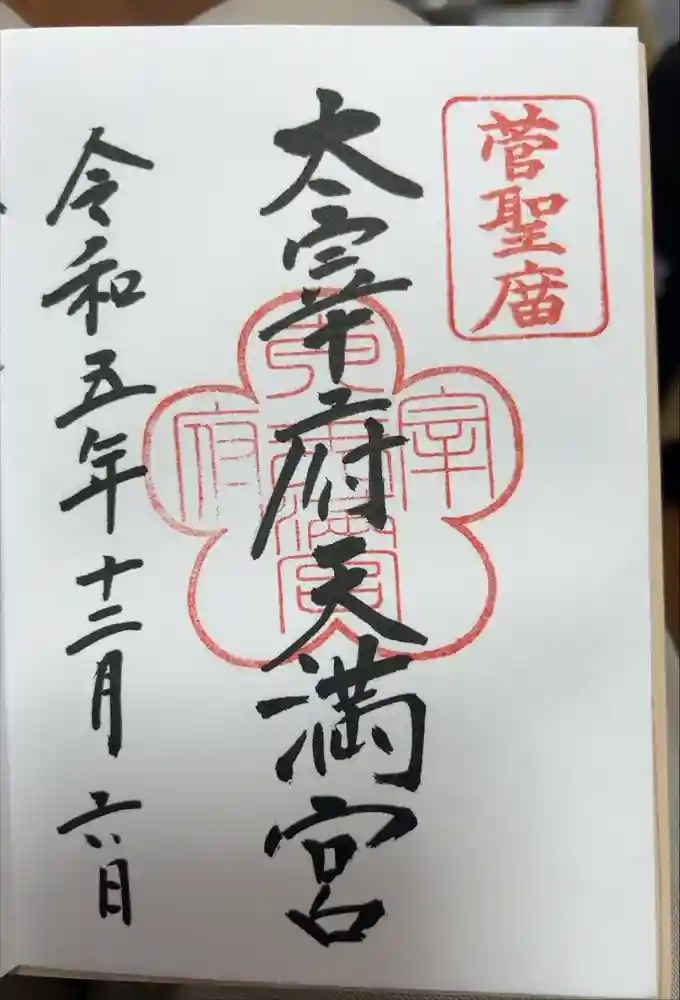 菅聖庿
太宰府天満宮
令和五年十二月六日